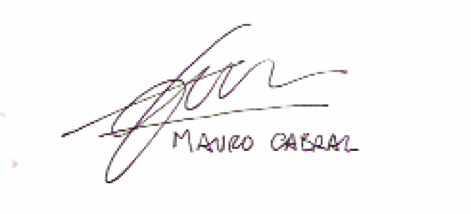 MAURO CABRAL